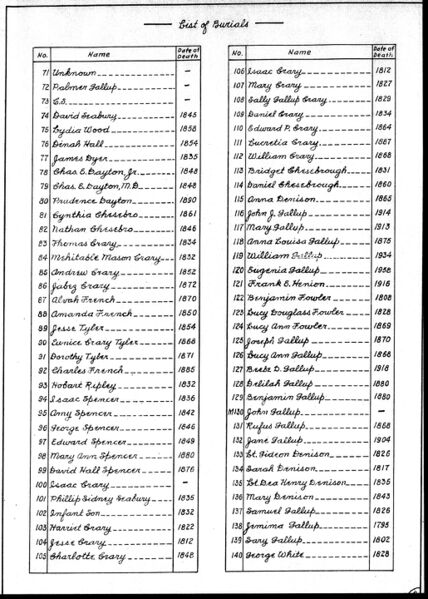 List of Burials
No. Name Date of Death
71 Unknown -
72 Palmer Gallup -
73 E.S. -
74 David Seabury 1845
75 Lydia Wood 1858
76 Dinah Hall 1854
77 James Dyer 1835
78 Chas E. Dayton, Jr. 1848
79 Chas. E. Dayton, M.D. 1848
80 Prudence Dayton 1890
81 Cynthia Chesebro 1861
82 Nathan Chesebro 1846
83 Thomas Crary 1834
84 Mehitable Mason Crary 1832
85 Andrew Crary 1852
86 Jabez Crary 1872
87 Alvah French 1870
88 Amanda French 1850
89 Jesse Tyler 1854
90 Eunice Crary Tyler 1868
91 Dorothy Tyler 1871
92 Charles French 1885
93 Hobart Ripley 1832
94 Isaac Spencer 1836
95 Amy Spencer 1842
96 George Spencer 1846
97 Edward Spencer 1849
98 Mary Ann Spencer 1880
99 David Hall Spencer 1876
100 Isaac Crary -
101 Phillip Sidney Seabury 1835
102 Infant Son 1832
103 Harriet Crary 1822
104 Jesse Crary 1812
105 Charlotte Crary 1848
No. Name Date of Death
106 Isaac Crary 1812
107 Mary Crary 1827
108 Sally Gallup Crary 1829
109 Daniel Crary 1834
110 Edward P. Crary 1864
111 Lucretia Crary 1887
112 William Crary 1868
113 Bridget Chesebrough 1831
114 Daniel Chesebrough 1860
115 Anna Denison 1865
116 John J. Gallup 1914
117 Mary Gallup 1913
118 Anna Louisa Gallup 1876
119 William Gallup 1934
120 Eugenia Gallup 1958
121 Frank E. Henion 1916
122 Benjamin Fowler 1808
123 Lucy Douglass Fowler 1828
124 Lucy Ann Fowler 1869
125 Joseph Gallup 1870
126 Lucy Ann Gallup 1866
127 Beebe D. Gallup 1918
128 Delilah Gallup 1880
129 Benjamin Gallup 1880
M130 John Gallup -
131 Rufus Gallup 1868
132 Jane Gallup 1904
133 Lt. Gideon Denison 1826
134 Sarah Denison 1817
135 Lt. Dea Henry Denison 1836
136 Mary Denison 1843
137 Samuel Gallup 1826
138 Jemima Gallup 1795
139 Sary Gallup 1802
140 George White 1828